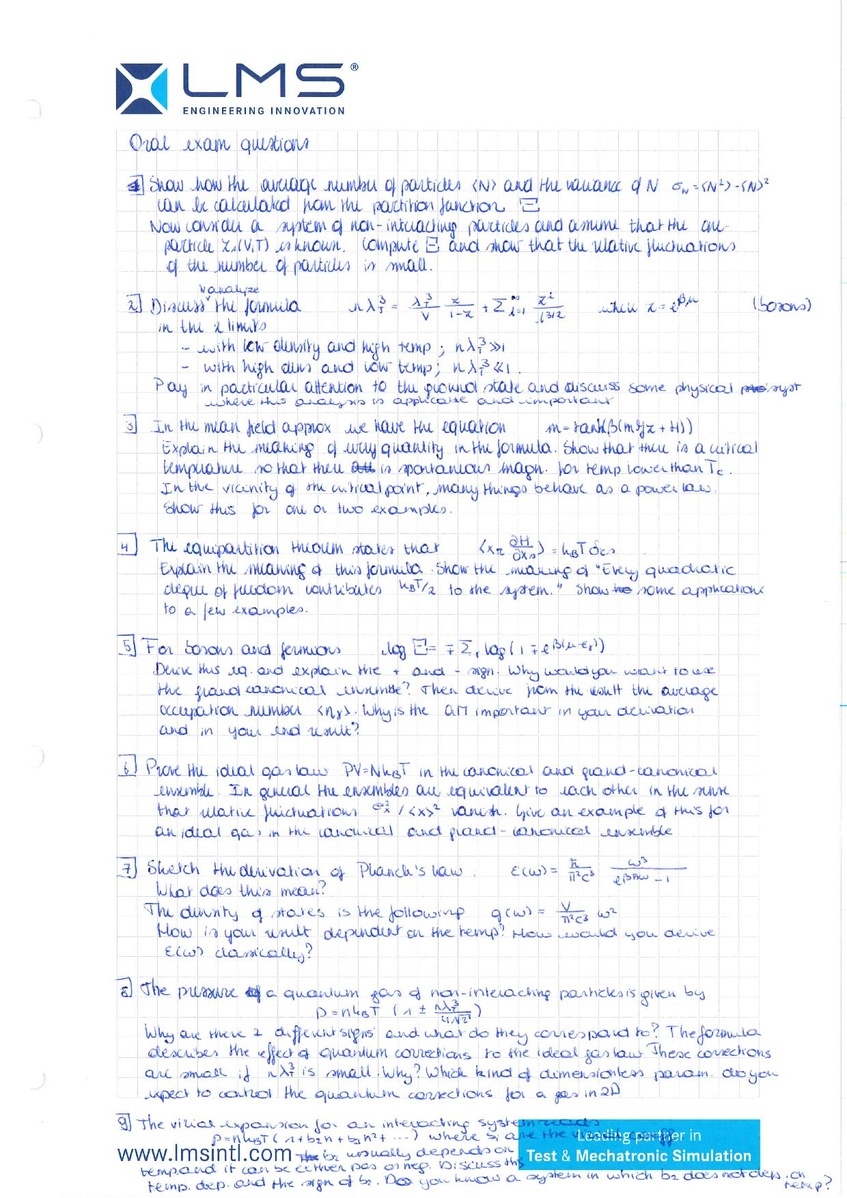 LMS®
ENGINEERING INNOVATION
Oral exam questions
1 Show how the average number of particles ⟨N⟩ and the variance of N σN = ⟨N²⟩-⟨N⟩²
can be calculated from the partition function Ξ
Now consider a system of non-interacting particles and assume that the one-
particle Z₁(V,T) is known. Compute Ξ and show that the relative fluctuations
of the number of particles is small.
& analyze
2 Discuss the formula nλ_T³ = λ_T³/V z/(1-z) + Σ_{l=1}^∞ z^l/l^{3/2} when z = e^{βμ} (bosons)
in the 2 limits
- with low density and high temp ; nλ_T³ ≫ 1
- with high dens and low temp; nλ_T³ ≪ 1.
Pay in particular attention to the ground state and discuss some physical syst
where this analysis is applicable and important
3 In the mean field approx we have the equation m = tanh(β(m𝒥z + H))
Explain the meaning of every quantity in the formula. Show that there is a critical
temperature so that there is spontaneous magn. for temp lower than Tc.
In the vicinity of the critical point, many things behave as a power law.
Show this for one or two examples.
4 The equipartition theorem states that ⟨x_r ∂H/∂x_s⟩ = k_BT δ_rs
Explain the meaning of this formula. Show the meaning of "Every quadratic
degree of freedom contributes k_BT/2 to the system." Show some applications
to a few examples.
5 For bosons and fermions log Ξ = ∓ Σ_r log(1 ∓ e^{β(μ-ε_r)})
Derive this eq. and explain the + and - sign. Why would you want to use
the grand canonical ensemble? Then derive from the result the average
occupation number ⟨n_r⟩. Why is the QM important in your derivation
and in your end result?
6 Prove the ideal gas law PV=Nk_BT in the canonical and grand-canonical
ensemble. In general the ensembles are equivalent to each other in the sense
that relative fluctuations σ_x²/⟨x⟩² vanish. Give an example of this for
an ideal gas in the canonical and grand-canonical ensemble
7 Sketch the derivation of Planck's law. ε(ω) = ħ/π²c³ ω³/(e^{βħω} - 1)
What does this mean?
The density of states is the following g(ω) = V/π²c³ ω²
How is your result dependent on the temp? How would you derive
ε(ω) classically?
8 The pressure of a quantum gas of non-interacting particles is given by
p = nk_BT (1 ± nλ_T³/4√2)
Why are there 2 different signs and what do they correspond to? The formula
describes the effect of quantum corrections to the ideal gas law These corrections
are small if nλ_T³ is small. Why? Which kind of dimensionless param. do you
expect to control the quantum corrections for a gas in 2D
9 The virial expansion for an interacting system reads
p=nk_BT (1+b₂n+b₃n²+ ...) where b_i are the
b₂ usually depends on
temp and it can be either pos or neg. Discuss the
temp. dep. and the sign of b₂. Do you know a system in which b₂ does not dep. on
temp?
www.lmsintl.com
Leading partner in
Test & Mechatronic Simulation